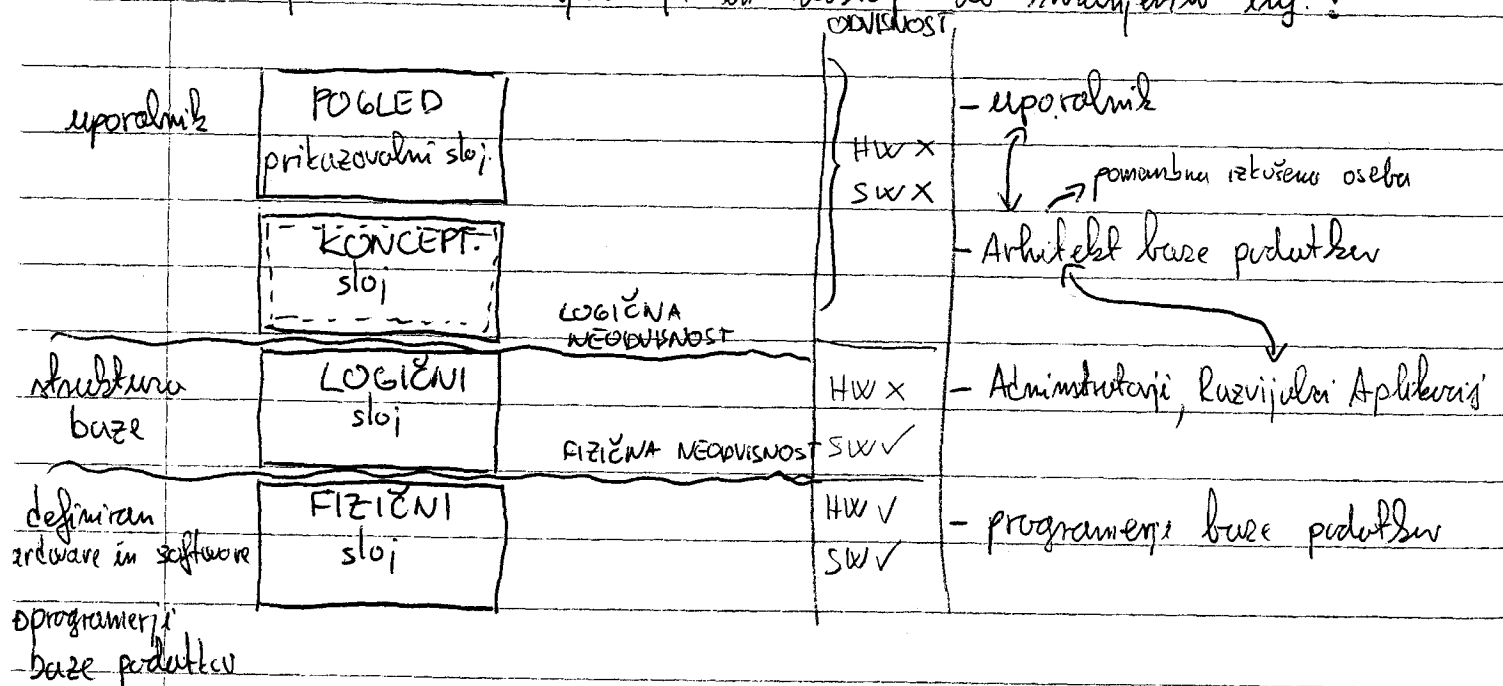 ODVISNOST
uporabnik
POGLED
prikazovalni sloj.
HW X
SW X
- uporabnik
pomembna izkušena oseba
- Arhitekt baze podatkov
KONCEPT.
sloj
LOGIČNA
NEODVISNOST
struktura
baze
LOGIČNI
sloj
HW X
SW ✓
- Administratorji, Razvijalci Aplikacij
FIZIČNA NEODVISNOST
definiran
ardware in software
FIZIČNI
sloj
HW ✓
SW ✓
- programerji baze podatkov
programerji
baze podatkov